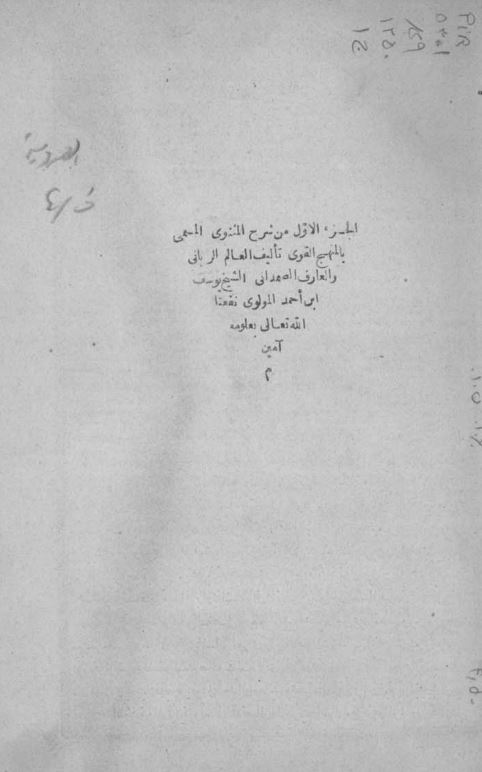 PIR
٥٣٠١
/٥٩
١٢٥٠
ج١
الجزء الاوّل من شرح المثنوى المسمى
بالمنهج القوى تأليف العالم الربانى
والعارف الصمدانى الشيخ يوسف
ابن أحمد المولوى نفعنا
الله تعالى بعلومه
آمين
م